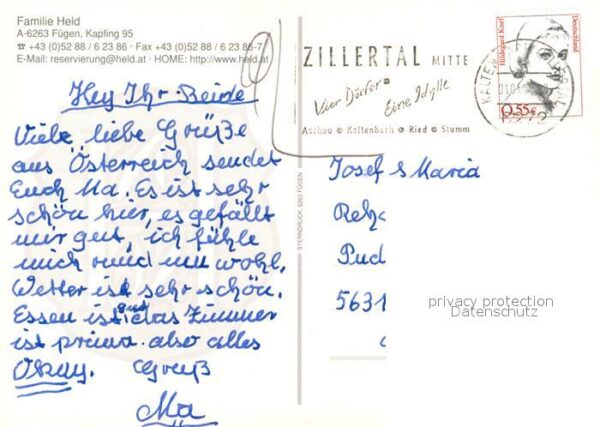 Familie Held
A-6263 Fügen, Kapfing 95
☎ +43 (0)52 88 / 6 23 86 · Fax +43 (0)52 88 / 6 23 86-7
E-Mail: reservierung@held.at · HOME: http://www.held.at
Hey Ihr Beide
Viele liebe Grüße
aus Österreich sendet
Euch Ma. Es ist sehr
schön hier, es gefällt
mir gut, ich fühle
mich rund um wohl.
Wetter ist sehr schön.
Essen ist gut das Zimmer
ist prima. also alles
Okay. Gruß
Ma
STERNDRUCK, 6263 FÜGEN
ZILLERTAL MITTE
Vier Dörfer
Eine Idylle
Aschau Kaltenbach Ried Stumm
Hildegard Knef
Deutschland
0,55€
Josef & Maria
Reha
Pud
5631
privacy protection
Datenschutz